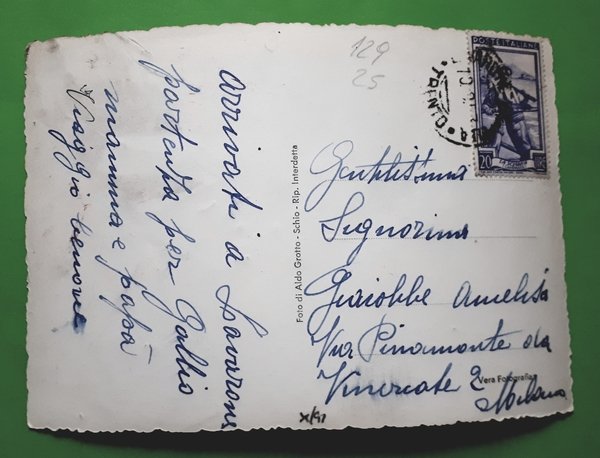 129
25
POSTE ITALIANE
20
arrivati a Lavarone
partenza per Gallio
mamma e papà
Viaggio benone
Foto di Aldo Grotto - Schio - Rip. Interdetta
Gentilissima
Signorina
Giaiobbe Amelisa
Via Pinamonte da
Vimercate 2
Milano
Vera Fotografia